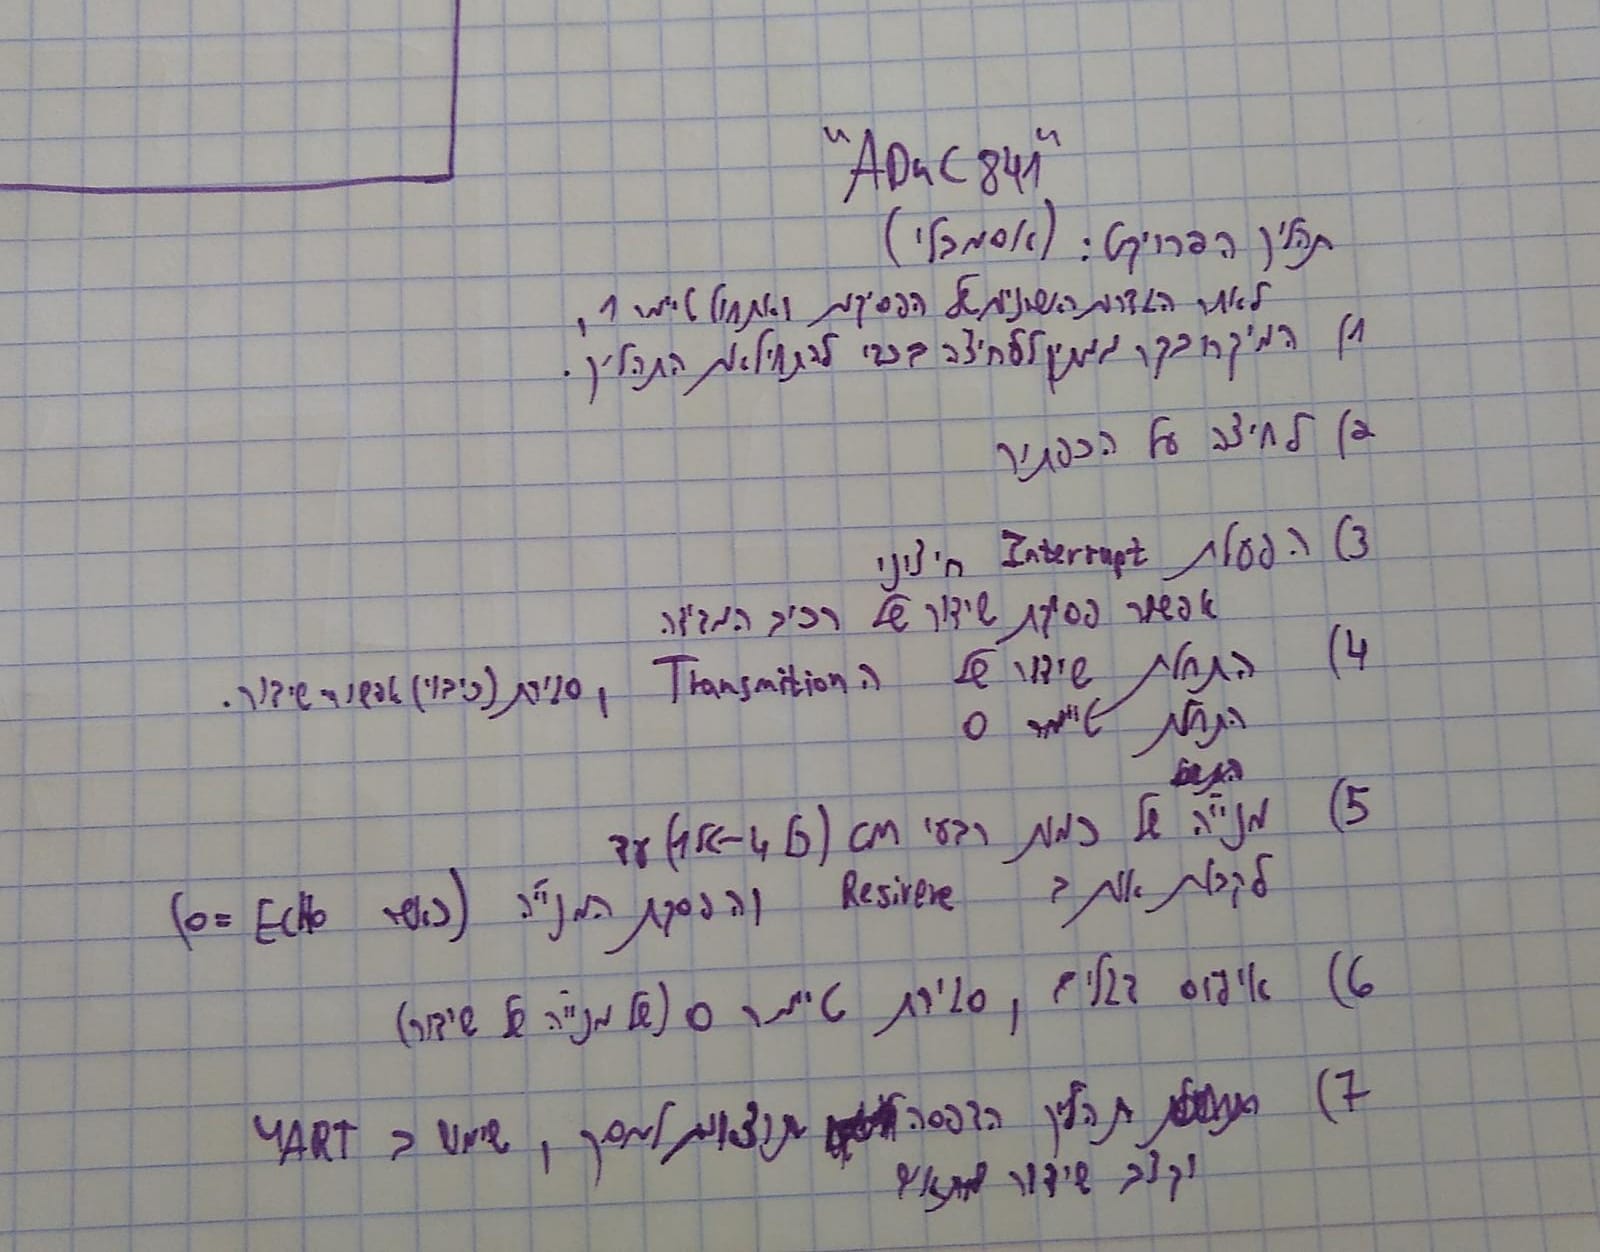 "ADuC 841"
תהליך הפרויקט: (אסמבלי)
לאחר הגדרות הראשוניות של הפסיקות ואתחול טיימר 1,
1) המיקרובקר ממתין ללחיצה בכדי להתחיל את התהליך.
2) לחיצה על הכפתור
3) הפעלת Interrupt חיצוני
אפשור פסיקת שידור של רכיב המדידה
4) התחלת שידור של ה Transmition, סגירת (כיבוי) אפשור שידור.
התחלת טיימר 0
5) מנייה של כמות רבעי cm (כל 4 → 1) עד
לקבלת אות ב Resivere והפסקת המנייה (כאשר ECHO =0)
6) איפוס דגלים, סגירת טיימר 0 (של מנייה של שידור)
7) תהליך הדפסה תוצאות למסך, שימוש ב UART
וקצב שידור מתאים